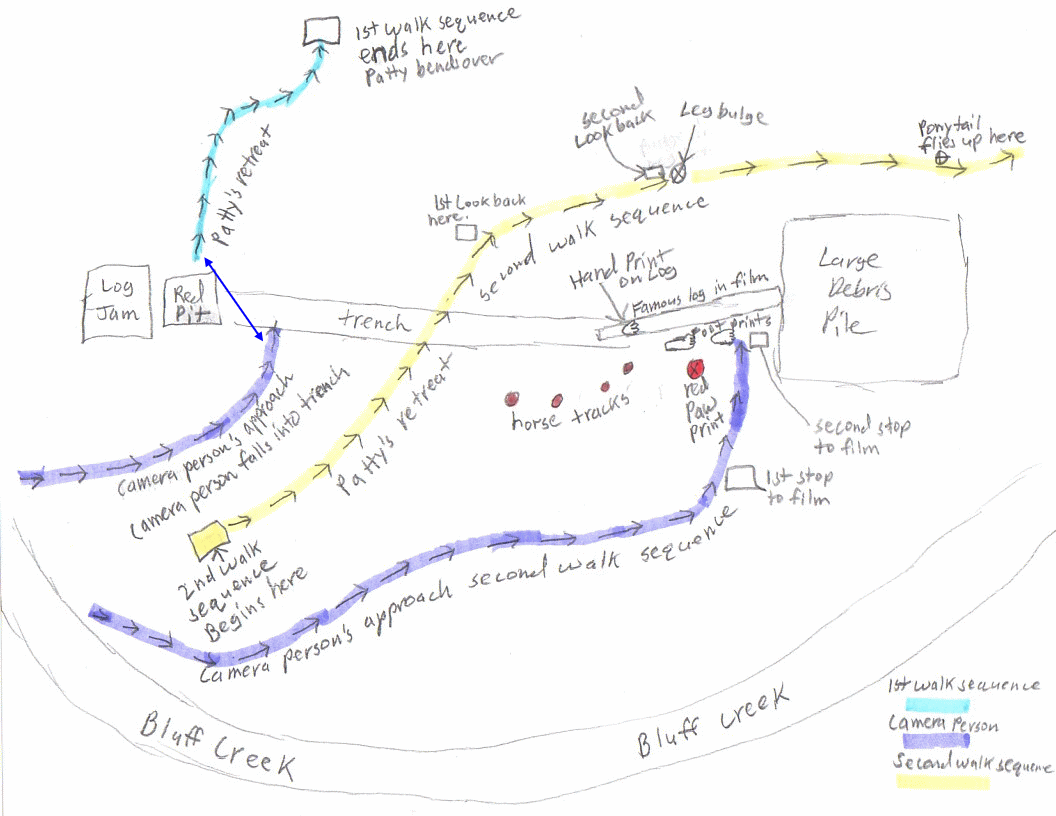 1st walk sequence
ends here
Patty bends over
Patty's retreat
second
Look back
Leg bulge
Ponytail
flies up here
1st Look back
here.
second walk sequence
Hand Print
on Log
Famous log in film
Large
Debris
Pile
Log
Jam
Red
Pit
trench
foot prints
horse tracks
red
Paw
print
second stop
to film
1st stop
to film
Camera person's approach
Camera person falls into trench
Patty's retreat
2nd walk
sequence
Begins here
Camera person's approach second walk sequence
Bluff Creek
Bluff Creek
1st walk sequence
Camera Person
Second walk sequence